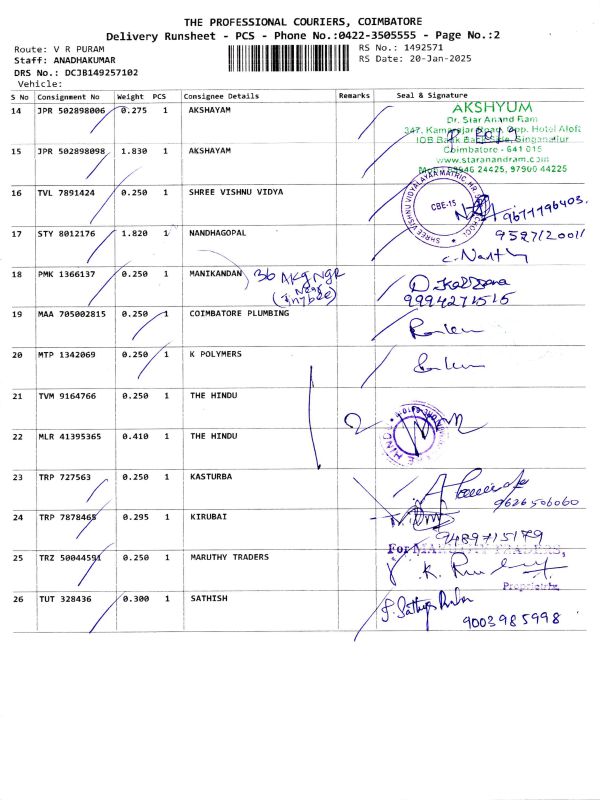 THE PROFESSIONAL COURIERS, COIMBATORE
Delivery Runsheet - PCS - Phone No.:0422-3505555 - Page No.:2
Route: V R PURAM
RS No.: 1492571
Staff: ANADHAKUMAR
RS Date: 20-Jan-2025
DRS No.: DCJB149257102
Vehicle:
S No Consignment No Weight PCS Consignee Details Remarks Seal & Signature
14 JPR 502898006 0.275 1 AKSHAYAM
AKSHYUM
Dr. Star Anand Ram
347, Kamarajar Road, Opp. Hotel Aloft
IOB Bank Singanallur
15 JPR 502898098 1.830 1 AKSHAYAM
Coimbatore - 641 015
www.staranandram.com
24425, 97900 44225
16 TVL 7891424 0.250 1 SHREE VISHNU VIDYA
SHREE VISHNU VIDYALAYAM MATRIC HR SCHOOL
CBE-15
9677796403.
17 STY 8012176 1.820 1 NANDHAGOPAL
9527120011
18 PMK 1366137 0.250 1 MANIKANDAN
36 AKG NGR
9994271515
19 MAA 705002815 0.250 1 COIMBATORE PLUMBING
20 MTP 1342069 0.250 1 K POLYMERS
21 TVM 9164766 0.250 1 THE HINDU
22 MLR 41395365 0.410 1 THE HINDU
23 TRP 727563 0.250 1 KASTURBA
9626506060
24 TRP 7878465 0.295 1 KIRUBAI
9489715179
For MARUTHY TRADERS,
25 TRZ 50044591 0.250 1 MARUTHY TRADERS
Proprietrix
26 TUT 328436 0.300 1 SATHISH
9003985998